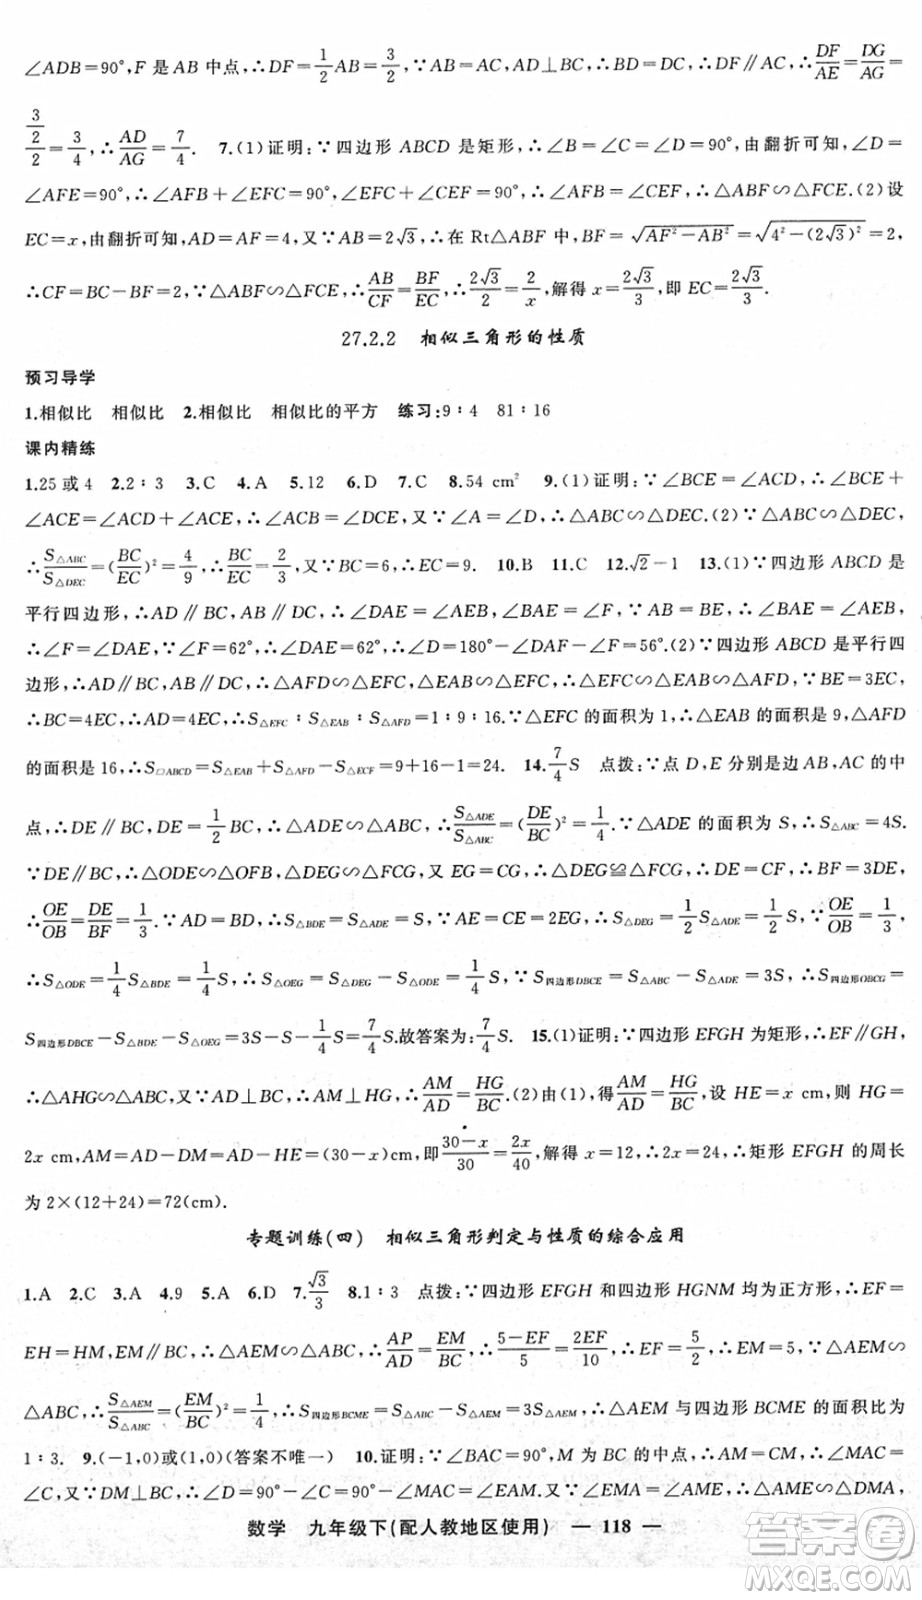 ∠ADB=90°,F 是 AB 中点,∴DF=1/2AB=3/2,∵AB=AC,AD⊥BC,∴BD=DC,∴DF∥AC,∴DF/AE=DG/AG=
(3/2)/2=3/4,∴AD/AG=7/4. 7.(1)证明:∵四边形 ABCD 是矩形,∴∠B=∠C=∠D=90°,由翻折可知,∠D=
∠AFE=90°,∴∠AFB+∠EFC=90°,∠EFC+∠CEF=90°,∴∠AFB=∠CEF,∴△ABF∽△FCE.(2)设
EC=x,由翻折可知,AD=AF=4,又∵AB=2√3,∴在 Rt△ABF 中,BF=√(AF²-AB²)=√(4²-(2√3)²)=2,
∴CF=BC-BF=2,∵△ABF∽△FCE,∴AB/CF=BF/EC,∴2√3/2=2/x,解得 x=2√3/3,即 EC=2√3/3.
27.2.2 相似三角形的性质
预习导学
1.相似比 相似比 2.相似比 相似比的平方 练习:9∶4 81∶16
课内精练
1.25或4 2.2∶3 3.C 4.A 5.12 6.D 7.C 8.54 cm² 9.(1)证明:∵∠BCE=∠ACD,∴∠BCE+
∠ACE=∠ACD+∠ACE,∴∠ACB=∠DCE,又∵∠A=∠D,∴△ABC∽△DEC.(2)∵△ABC∽△DEC,
∴S△ABC/S△DEC=(BC/EC)²=4/9,∴BC/EC=2/3,又∵BC=6,∴EC=9. 10.B 11.C 12.√2-1 13.(1)∵四边形 ABCD是
平行四边形,∴AD∥BC,AB∥DC,∴∠DAE=∠AEB,∠BAE=∠F,∵AB=BE,∴∠BAE=∠AEB,
∴∠F=∠DAE,∵∠F=62°,∴∠DAE=62°,∴∠D=180°-∠DAE-∠F=56°.(2)∵四边形 ABCD是平行四
边形,∴AD∥BC,AB∥DC,∴△AFD∽△EFC,△EAB∽△EFC,∴△EFC∽△EAB∽△AFD,∵BE=3EC,
∴BC=4EC,∴AD=4EC,∴S△EFC∶S△EAB∶S△AFD=1∶9∶16.∵△EFC 的面积为1,∴△EAB 的面积为9,△AFD
的面积是16,∴S□ABCD=S△EAB+S△AFD-S△ECF=9+16-1=24. 14.7/4S 点拨:∵点 D,E 分别是边 AB,AC 的中
点,∴DE∥BC,DE=1/2BC,∴△ADE∽△ABC,∴S△ADE/S△ABC=(DE/BC)²=1/4.∵△ADE 的面积为S,∴S△ABC=4S.
∵DE∥BC,∴△ODE∽△OFB,△DEG∽△FCG,又EG=CG,∴△DEG≌△FCG,∴DE=CF,∴BF=3DE,
∴OE/OB=DE/BF=1/3.∵AD=BD,∴S△BDE=S△ADE=S,∵AE=CE=2EG,∴S△DEG=1/2S△ADE=1/2S,∵OE/OB=1/3,
∴S△ODE=1/4S△BDE=1/4S,∴S△OEG=S△DEG-S△ODE=1/4S,∵S四边形DBCE=S△ABC-S△ADE=3S,∴S四边形OBCG=
S四边形DBCE-S△BDE-S△OEG=3S-S-1/4S=7/4S.故答案为:7/4S. 15.(1)证明:∵四边形 EFGH 为矩形,∴EF∥GH,
∴△AHG∽△ABC,又∵AD⊥BC,∴AM⊥HG,∴AM/AD=HG/BC.(2)由(1)得AM/AD=HG/BC,设 HE=x cm,则 HG=
2x cm,AM=AD-DM=AD-HE=(30-x)cm,即30-x/30=2x/40,解得 x=12,∴2x=24,∴矩形 EFGH 的周长
为2×(12+24)=72(cm).
专题训练(四) 相似三角形判定与性质的综合应用
1.A 2.C 3.A 4.9 5.A 6.D 7.√3/3 8.1∶3 点拨:∵四边形 EFGH 和四边形 HGNM 均为正方形,∴EF=
EH=HM,EM∥BC,∴△AEM∽△ABC,∴AP/AD=EM/BC,∴5-EF/5=2EF/10,∴EF=5/2,∴EM=5,∵△AEM∽
△ABC,∴S△AEM/S△ABC=(EM/BC)²=1/4,∴S四边形BCME=S△ABC-S△AEM=3S△AEM,∴△AEM 与四边形 BCME 的面积比为
1∶3. 9.(-1,0)或(1,0)(答案不唯一) 10.证明:∵∠BAC=90°,M 为 BC 的中点,∴AM=CM,∴∠MAC=
∠C,又∵DM⊥BC,∴∠D=90°-∠B=∠C,∴∠MAC=∠D,又∵∠AME=∠DMA,∴△AME∽△DMA,
数学 九年级下(配人教地区使用) — 118 —
答案圈
MXQE.COM